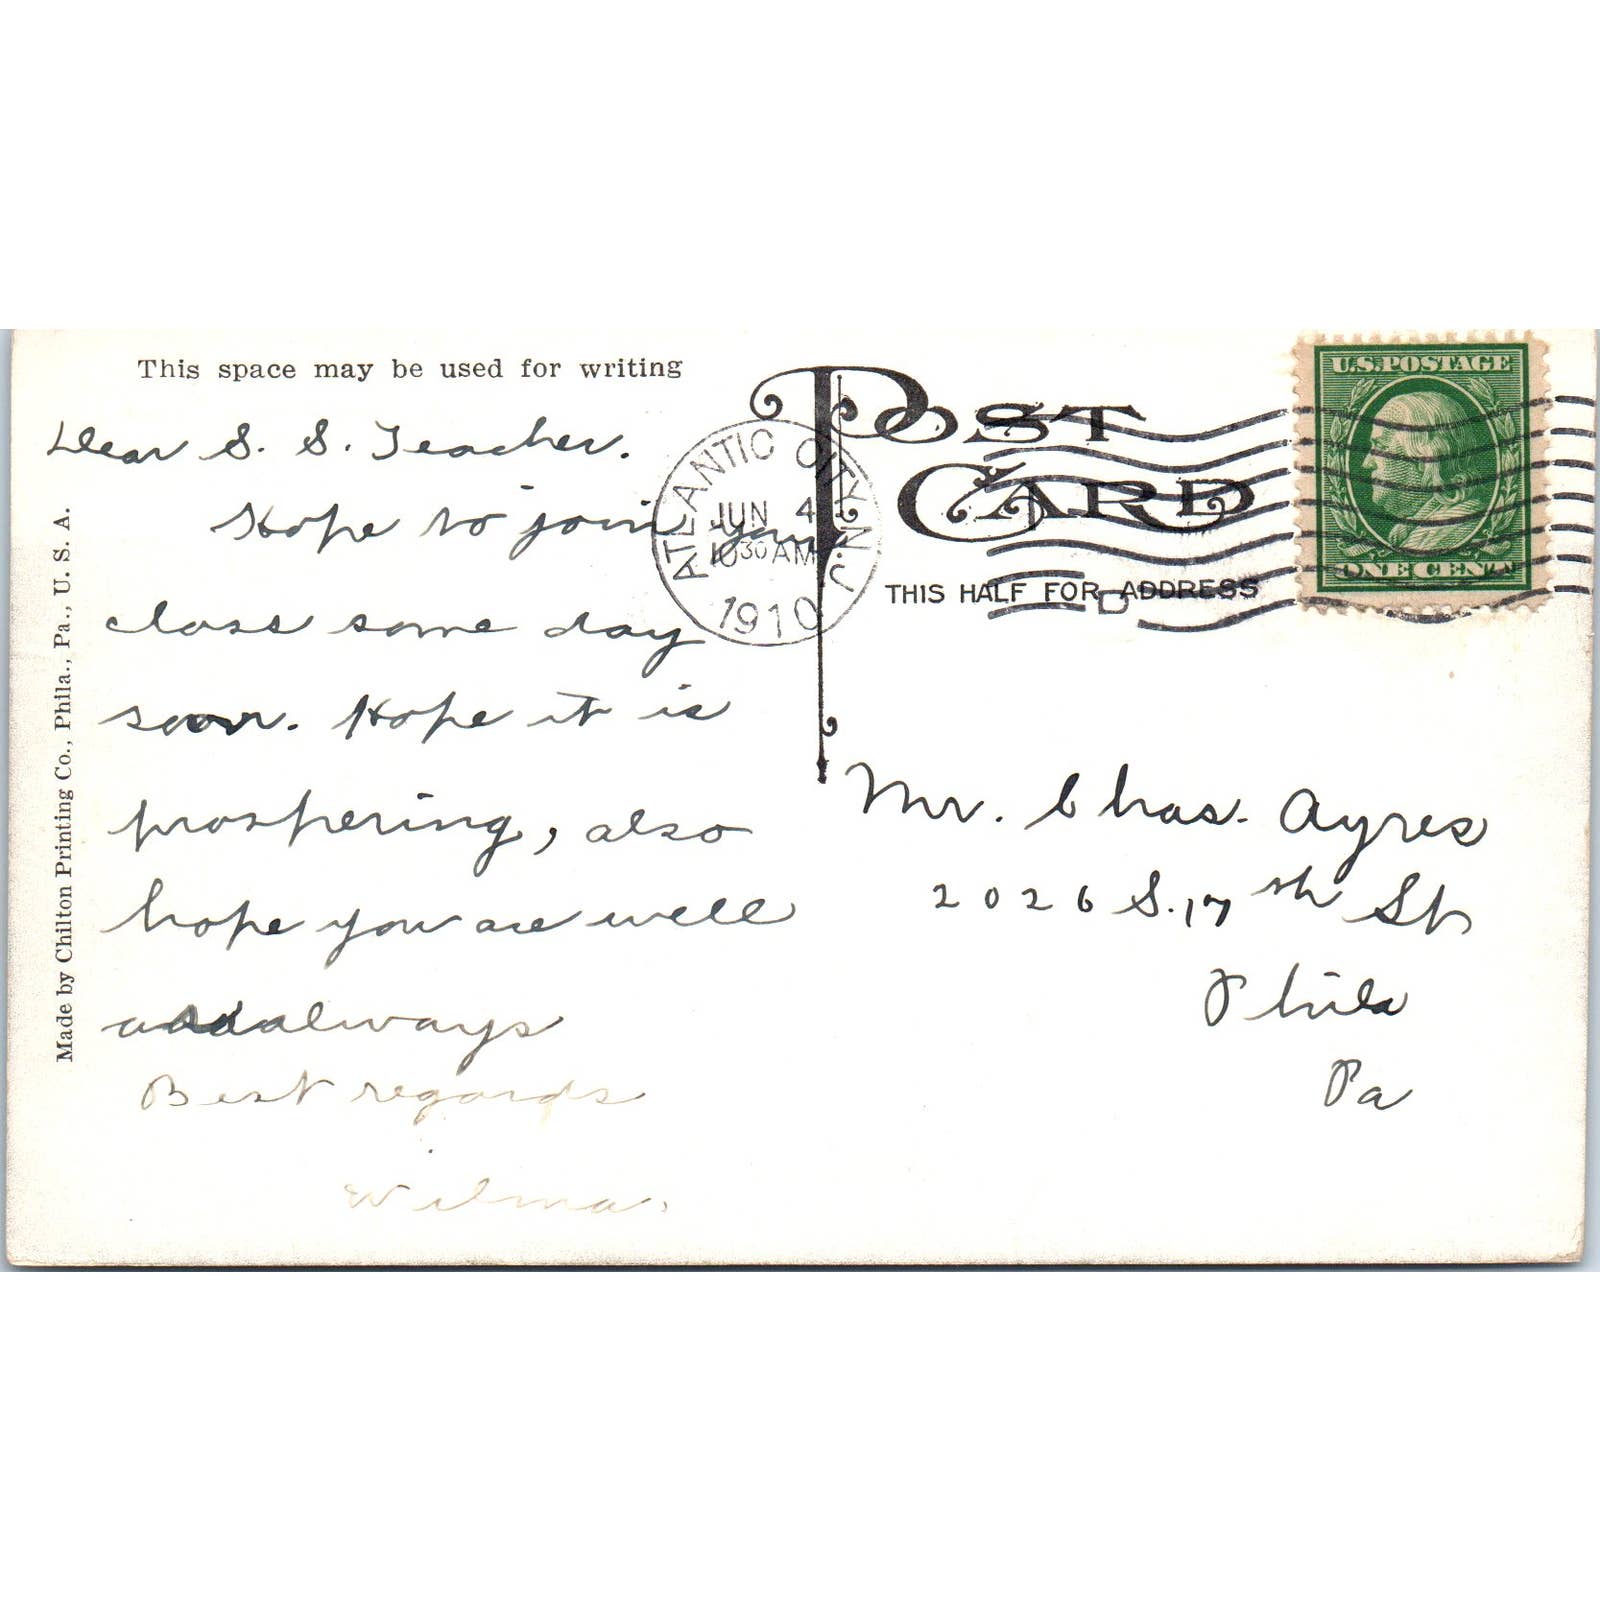 This space may be used for writing
Dear S. S. Teacher.
Hope to join your
class some day
soon. Hope it is
prospering, also
hope you are well
always
Best regards
Wilma.
Made by Chilton Printing Co., Phila., Pa., U. S. A.
ATLANTIC CITY, N.J.
JUN 4
10 30 AM
1910
POST
CARD
THIS HALF FOR ADDRESS
D
U.S. POSTAGE
ONE CENT
Mr. Chas. Ayres
2026 S. 17th St
Phila
Pa